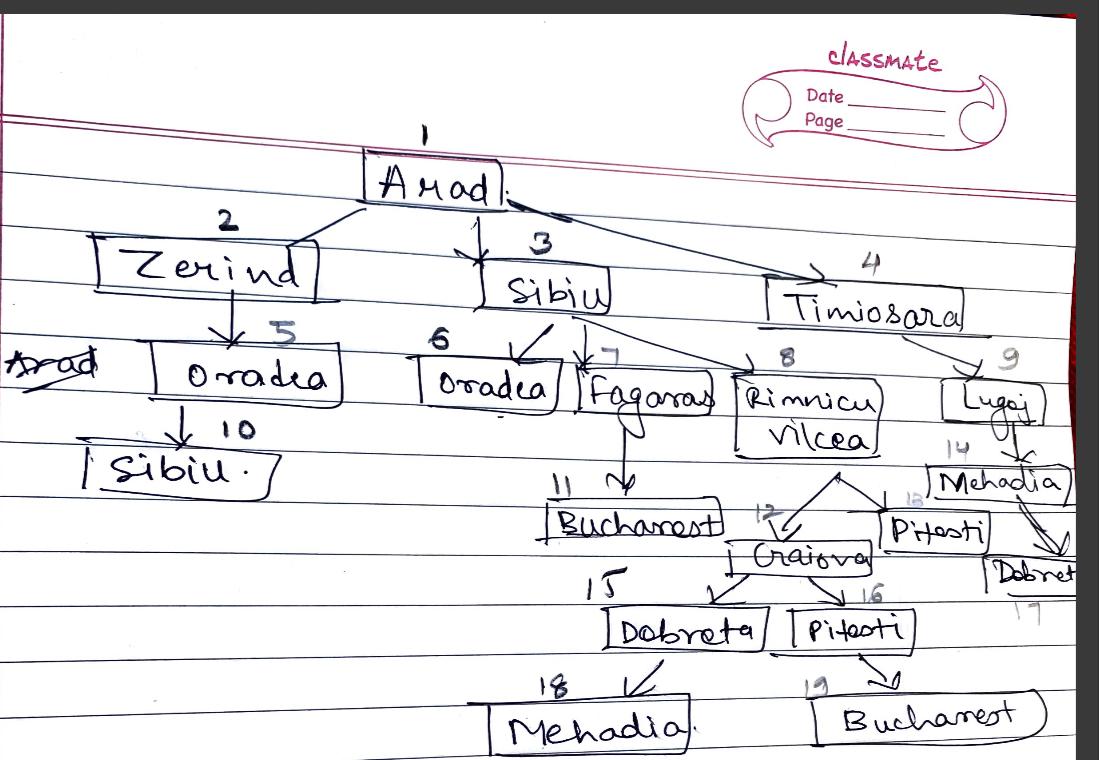 classmate
Date
Page
1
Arad
2
Zerind
3
Sibiu
4
Timiosara
Arad
5
Oradea
6
Oradea
7
Fagaras
8
Rimnicu
Vilcea
9
Lugoj
10
Sibiu.
11
Bucharest
12
Craiova
13
Pitesti
14
Mehadia
15
Dobreta
16
Pitesti
17
Dobret
18
Mehadia
19
Bucharest